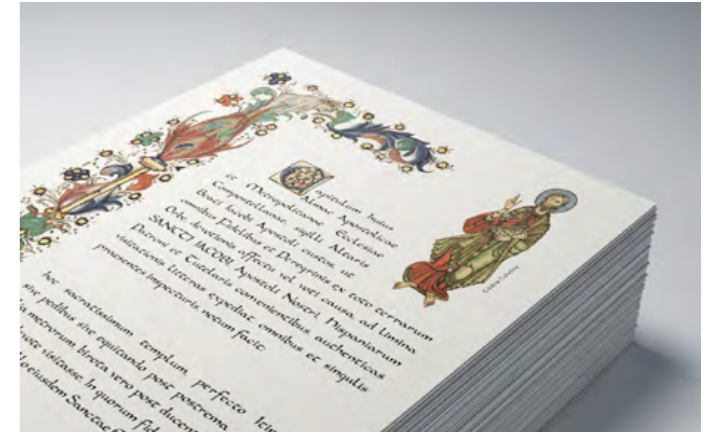 Capitulum huius
Almae Apostolicae
et Metropolitanae Ecclesiae
Compostellanae, sigilli Altaris
Beati Iacobi Apostoli custos, ut
omnibus Fidelibus et Peregrinis ex toto terrarum
Orbe, devotionis affectu vel voti causa, ad limina
SANCTI IACOBI, Apostoli Nostri, Hispaniarum
Patroni et Tutelaris convenientibus, authenticas
visitationis litteras expediat, omnibus et singulis
praesentes inspecturis, notum facit:
hoc sacratissimum templum, perfecto
sive pedibus sive equitando post postrema
metrorum, birota vero post
visitasse. In quorum
eiusdem Sanctae
Códice Calixtino